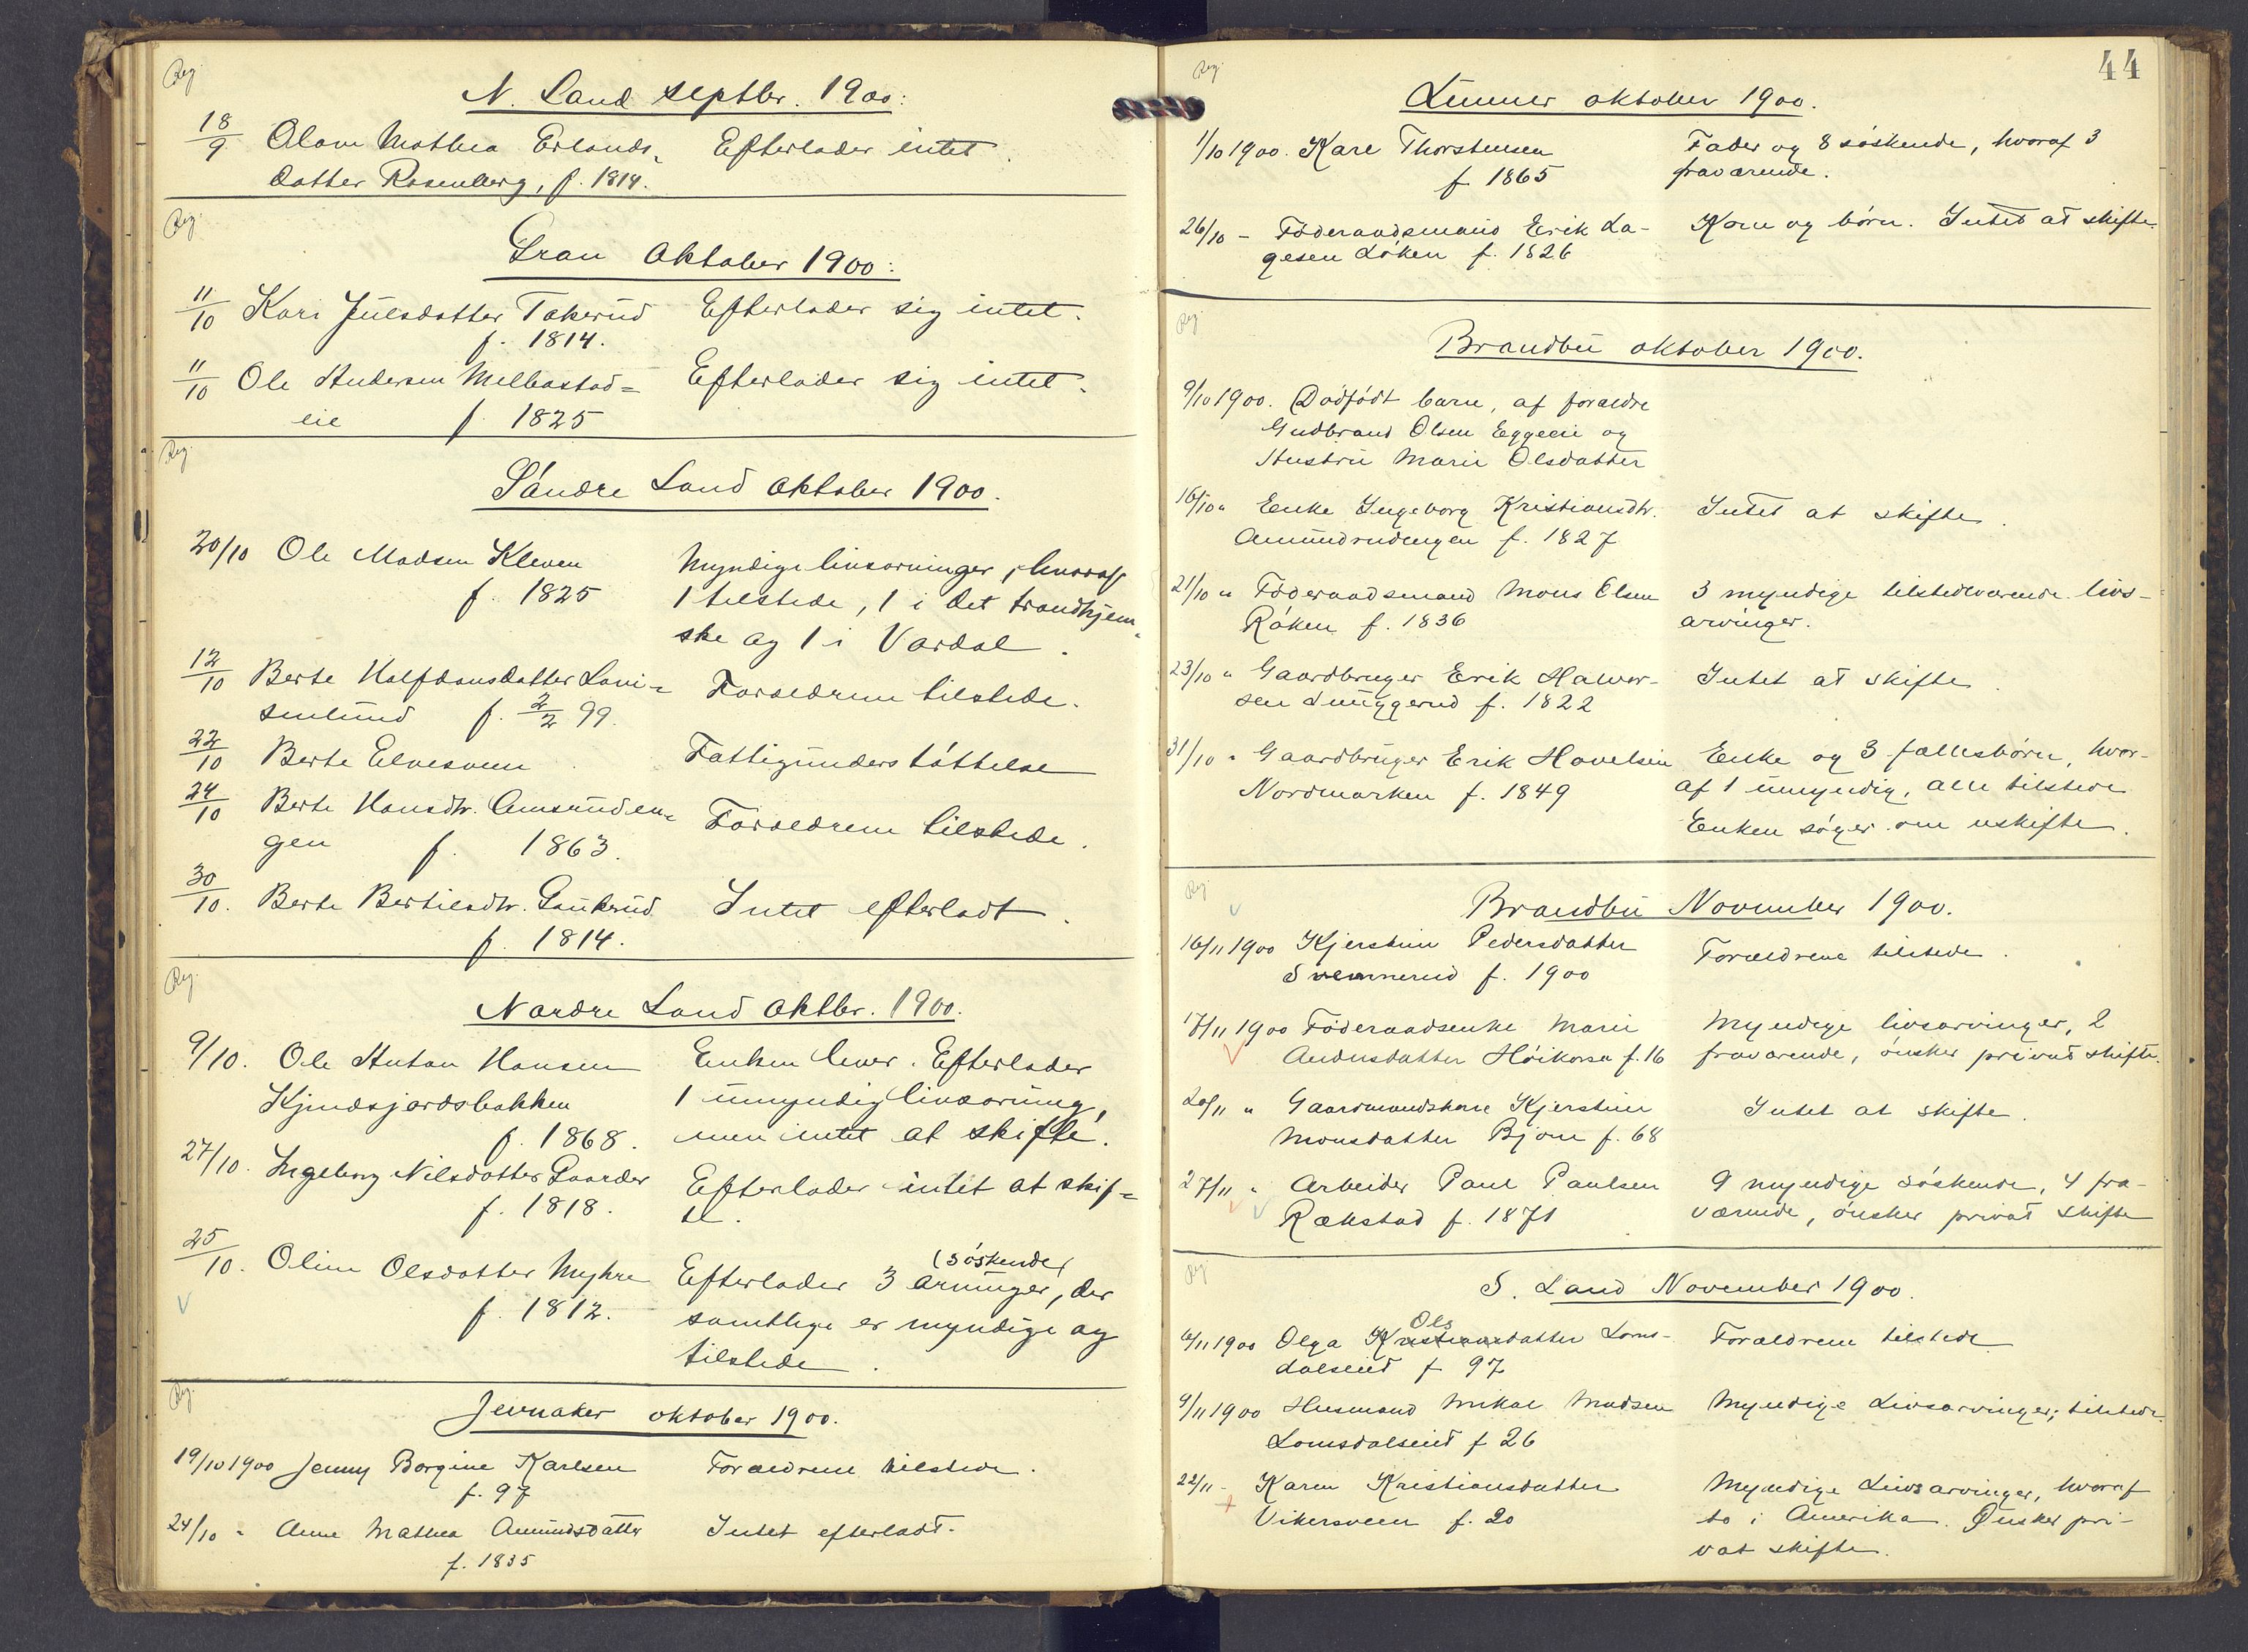 Reg.
N. Land septbr. 1900:
18/9 Olave Mathea Erlands- Efterlader intet.
datter Rosenberg, f. 1814.
Reg.
Gran Oktober 1900:
11/10 Kari Julsdatter Takerud Efterlader sig intet.
f. 1814.
11/10 Ole Andersen Melbostad= Efterlader sig intet.
eie f. 1825
Reg.
Søndre Land Oktober 1900.
20/10 Ole Madsen Kleven Myndige livsarvinger, hvoraf
f. 1825 1 tilstede, 1 i det trondhjem-
ske og 1 i Vardal.
12/10 Berte Halfdansdatter Lani=
senlund f. 2/2 99. Forældrene tilstede.
22/10 Berte Elvesveen Fattigunderstøttelse
24/10 Berte Hansdtr. Amsrudem=
gen f. 1863. Forældrene tilstede.
30/10. Berte Bertilsdtr. Gaukerud Intet efterladt.
f. 1814.
Reg.
Nordre Land Oktbr. 1900.
9/10. Ole Anton Hansen Enken lever. Efterlader
Kjendsjordsbakken 1 umyndig livsarving,
f. 1868. men intet at skifte.
27/10. Ingeborg Nilsdatter Gaarder Efterlader intet at skif=
f. 1818. te.
25/10. Oline Olsdatter Myhre Efterlader 3 arvinger, der
(søskende)
f. 1812. samtlige er myndige og
tilstede.
Reg.
Jevnaker oktober 1900.
19/10 1900 Jenny Borgine Karlsen Forældrene tilstede.
f. 97
24/10 " Anne Mathea Amundsdatter Intet efterladt.
f. 1835
44
Reg.
Lunner oktober 1900.
1/10 1900. Kare Thorstensen Fader og 8 søskende, hvoraf 3
f 1865 fraværende.
26/10 - Føderaadsmand Erik La- Kone og børn. Intet at skifte.
gesen Løken f. 1826
Reg.
Brandbu oktober 1900.
9/10 1900. Dødfødt barn, af forældre
Gudbrand Olsen Eggeeie og
Hustru Marie Olsdatter
16/10 " Enke Ingeborg Kristiansdtr. Intet at skifte.
Amundrudengen f. 1827
21/10 " Føderaadsmand Mons Olsen 3 myndige tilstedeværende livs-
Røken f. 1836 arvinger.
23/10 " Gaardbruger Erik Halvor- Intet at skifte.
sen Lunggerud f. 1822
31/10 " Gaardbruger Erik Hovelsen Enke og 3 fællesbørn, hvor-
Nordmarken f. 1849 af 1 umyndig, alle tilstede
Enken søger om uskifte.
Reg.
Brandbu November 1900.
16/11 1900 Kjerstine Pedersdatter Forældrene tilstede.
Svennerud f. 1900
17/11 1900 Føderaadsenke Marie Myndige livsarvinger, 2
Andersdatter Høikorsa f. 16 fraværende, ønsker privat skifte.
20/11 " Gaardmandskone Kjerstine Intet at skifte.
Monsdatter Bjone f. 68
27/11 " Arbeider Paul Paulsen 9 myndige søskende, 4 fra-
Rækstad f. 1871 værende, ønsker privat skifte
Reg.
S. Land November 1900.
Ols
6/11 1900 Olga Kristiansdatter Loms- Forældrene tilstede
dalseiet f 97
9/11 1900 Husmand Mikal Madsen Myndige Livsarvinger, tilstede.
Lomsdalseiet f 26
22/11 - Karen Kristiansdatter Myndige Livsarvinger, hvoraf
Vikersveen f. 20 to i Amerika. Ønsker pri-
vat skifte.